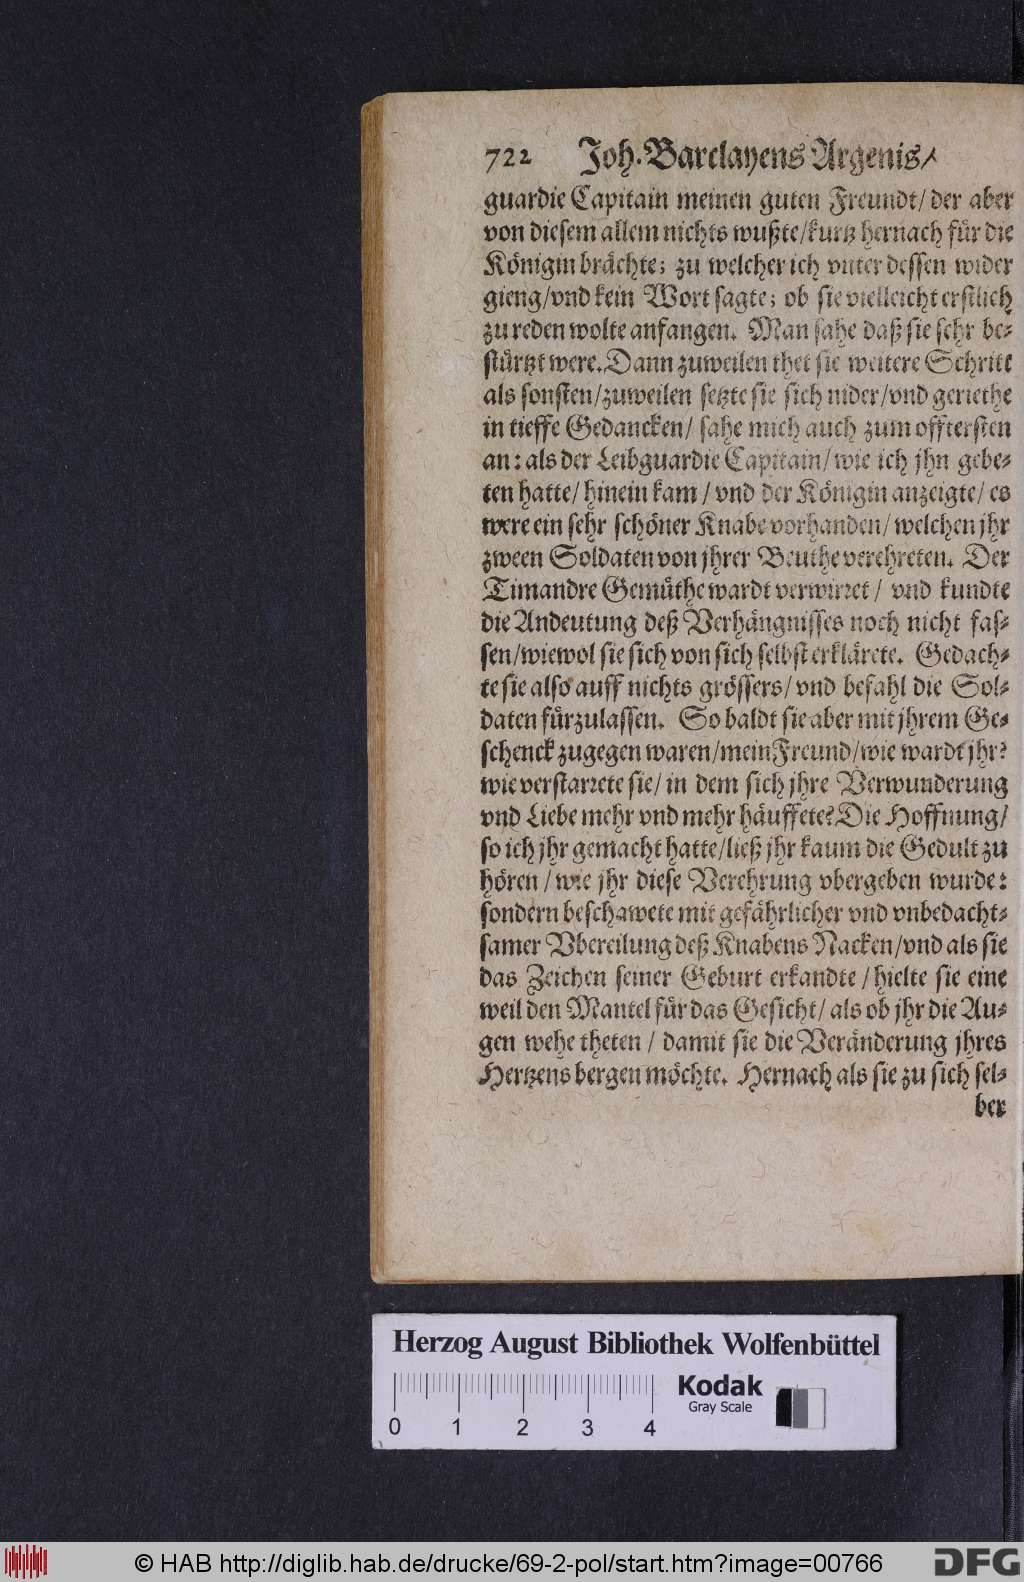 722 Joh. Barclayens Argenis/
guardie Capitain meinen guten Freundt/ der aber
von diesem allem nichts wußte/kurtz hernach für die
Königin brächte; zu welcher ich vnter dessen wider
gieng/vnd kein Wort sagte; ob sie vielleicht erstlich
zu reden wolte anfangen. Man sahe daß sie sehr be-
stürtzt were. Dann zuweilen thet sie weitere Schritt
als sonsten/zuweilen setzte sie sich nider/vnd geriethe
in tieffe Gedancken/ sahe mich auch zum offtersten
an: als der Leibguardie Capitain/ wie ich jhn gebe-
ten hatte/ hinein kam / vnd der Königin anzeigte/ es
were ein sehr schöner Knabe vorhanden/ welchen jhr
zween Soldaten von jhrer Beuthe verehreten. Der
Timandre Gemüthe wardt verwirret / vnd kundte
die Andeutung deß Verhängnisses noch nicht fas-
sen/wiewol sie sich von sich selbst erklärete. Gedach-
te sie also auff nichts grössers/ vnd befahl die Sol-
daten fürzulassen. So baldt sie aber mit jhrem Ge-
schenck zugegen waren/mein Freund/wie wardt jhr?
wie verstarrete sie/ in dem sich jhre Verwunderung
vnd Liebe mehr vnd mehr häuffete? Die Hoffnung/
so ich jhr gemacht hatte/ließ jhr kaum die Gedult zu
hören / wie jhr diese Verehrung vbergeben wurde:
sondern beschawete mit gefährlicher vnd vnbedacht-
samer Vbereilung deß Knabens Nacken/vnd als sie
das Zeichen seiner Geburt erkandte / hielte sie eine
weil den Mantel für das Gesicht/ als ob jhr die Au-
gen wehe theten / damit sie die Veränderung jhres
Hertzens bergen möchte. Hernach als sie zu sich sel-
ber
Herzog August Bibliothek Wolfenbüttel
0 1 2 3 4
Kodak
Gray Scale
© HAB http://diglib.hab.de/drucke/69-2-pol/start.htm?image=00766
DFG